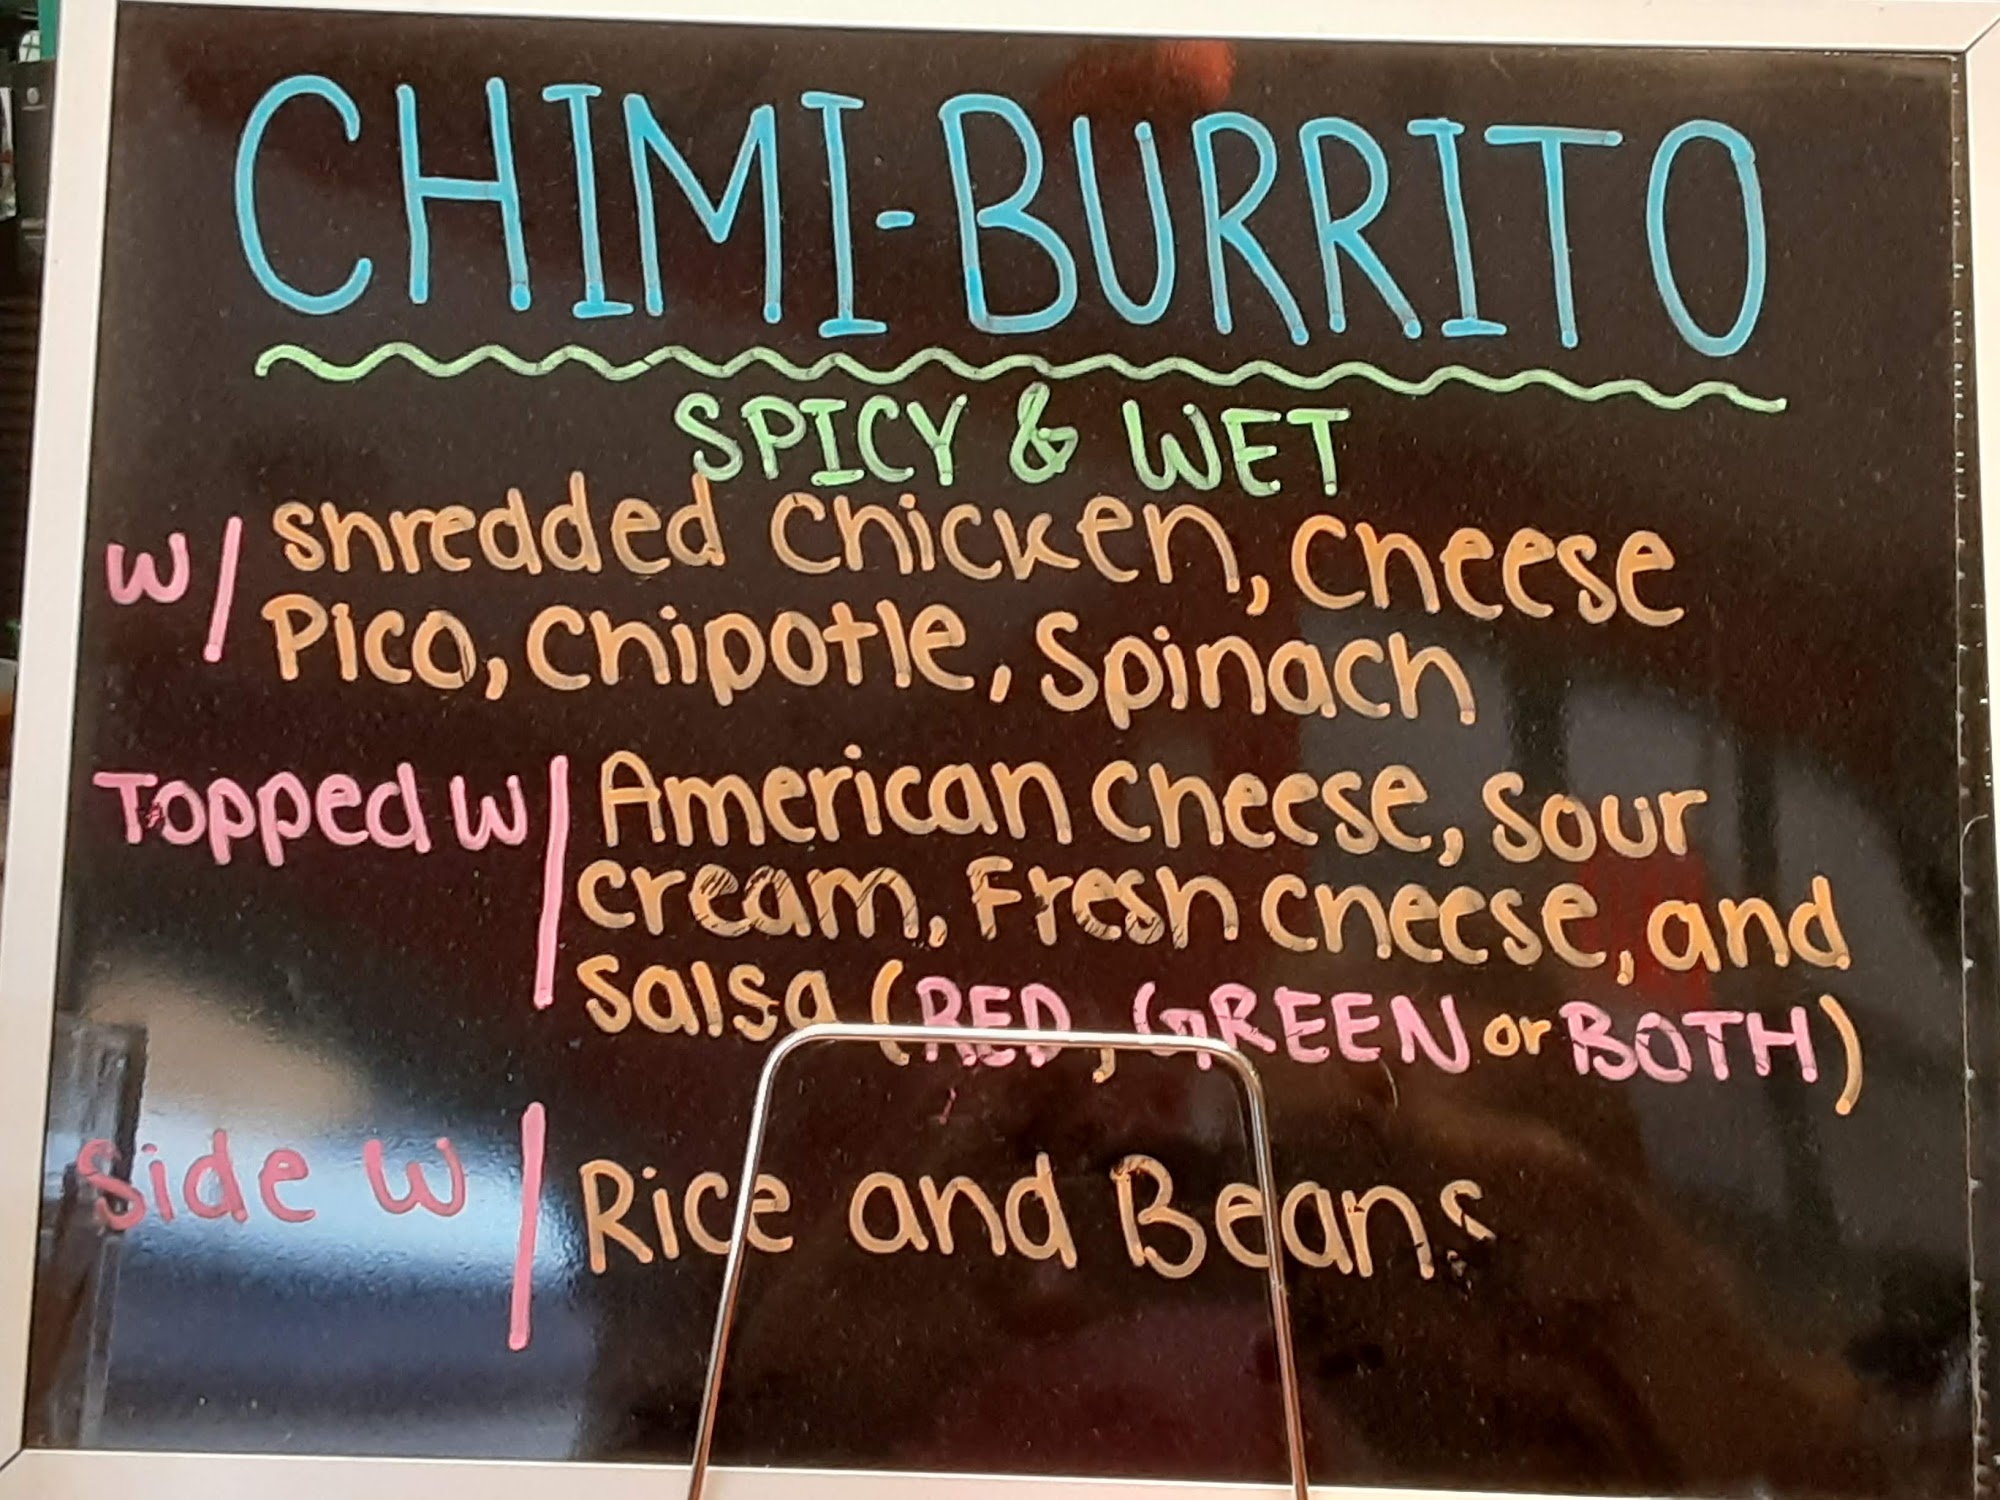 CHIMI-BURRITO
SPICY & WET
w/ shredded chicken, cheese
Pico, Chipotle, Spinach
Topped w/ American cheese, Sour
cream, Fresh cheese, and
salsa (RED, GREEN or BOTH)
Side w/ Rice and Beans